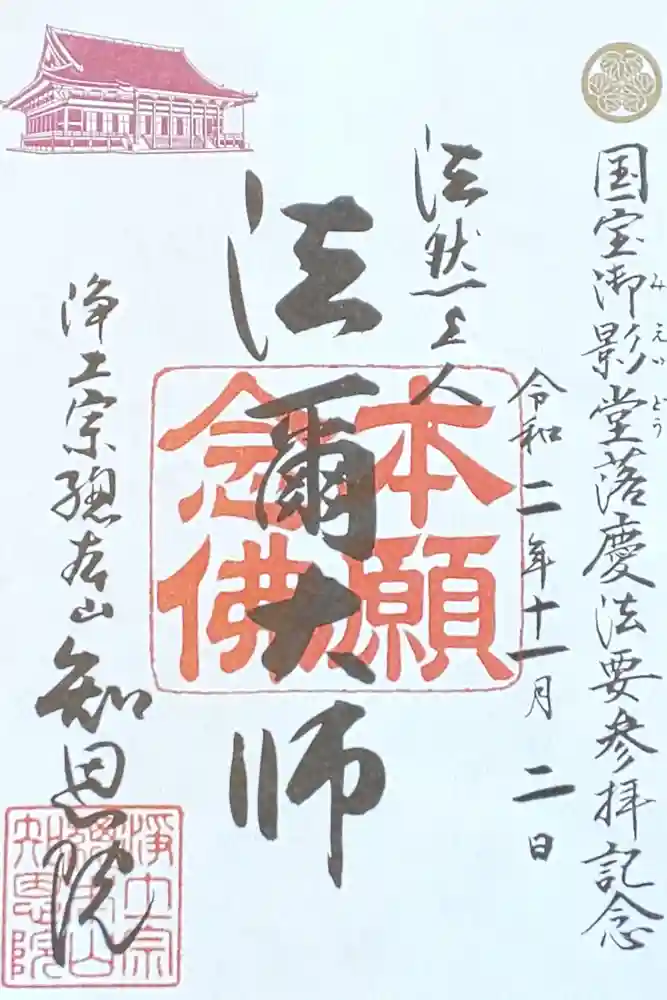 国宝御影堂落慶法要参拝記念
みえいどう
令和二年十一月二日
法然上人
法爾大師
本願
念佛
浄土宗總本山知恩院
淨土宗
總本山
知恩院